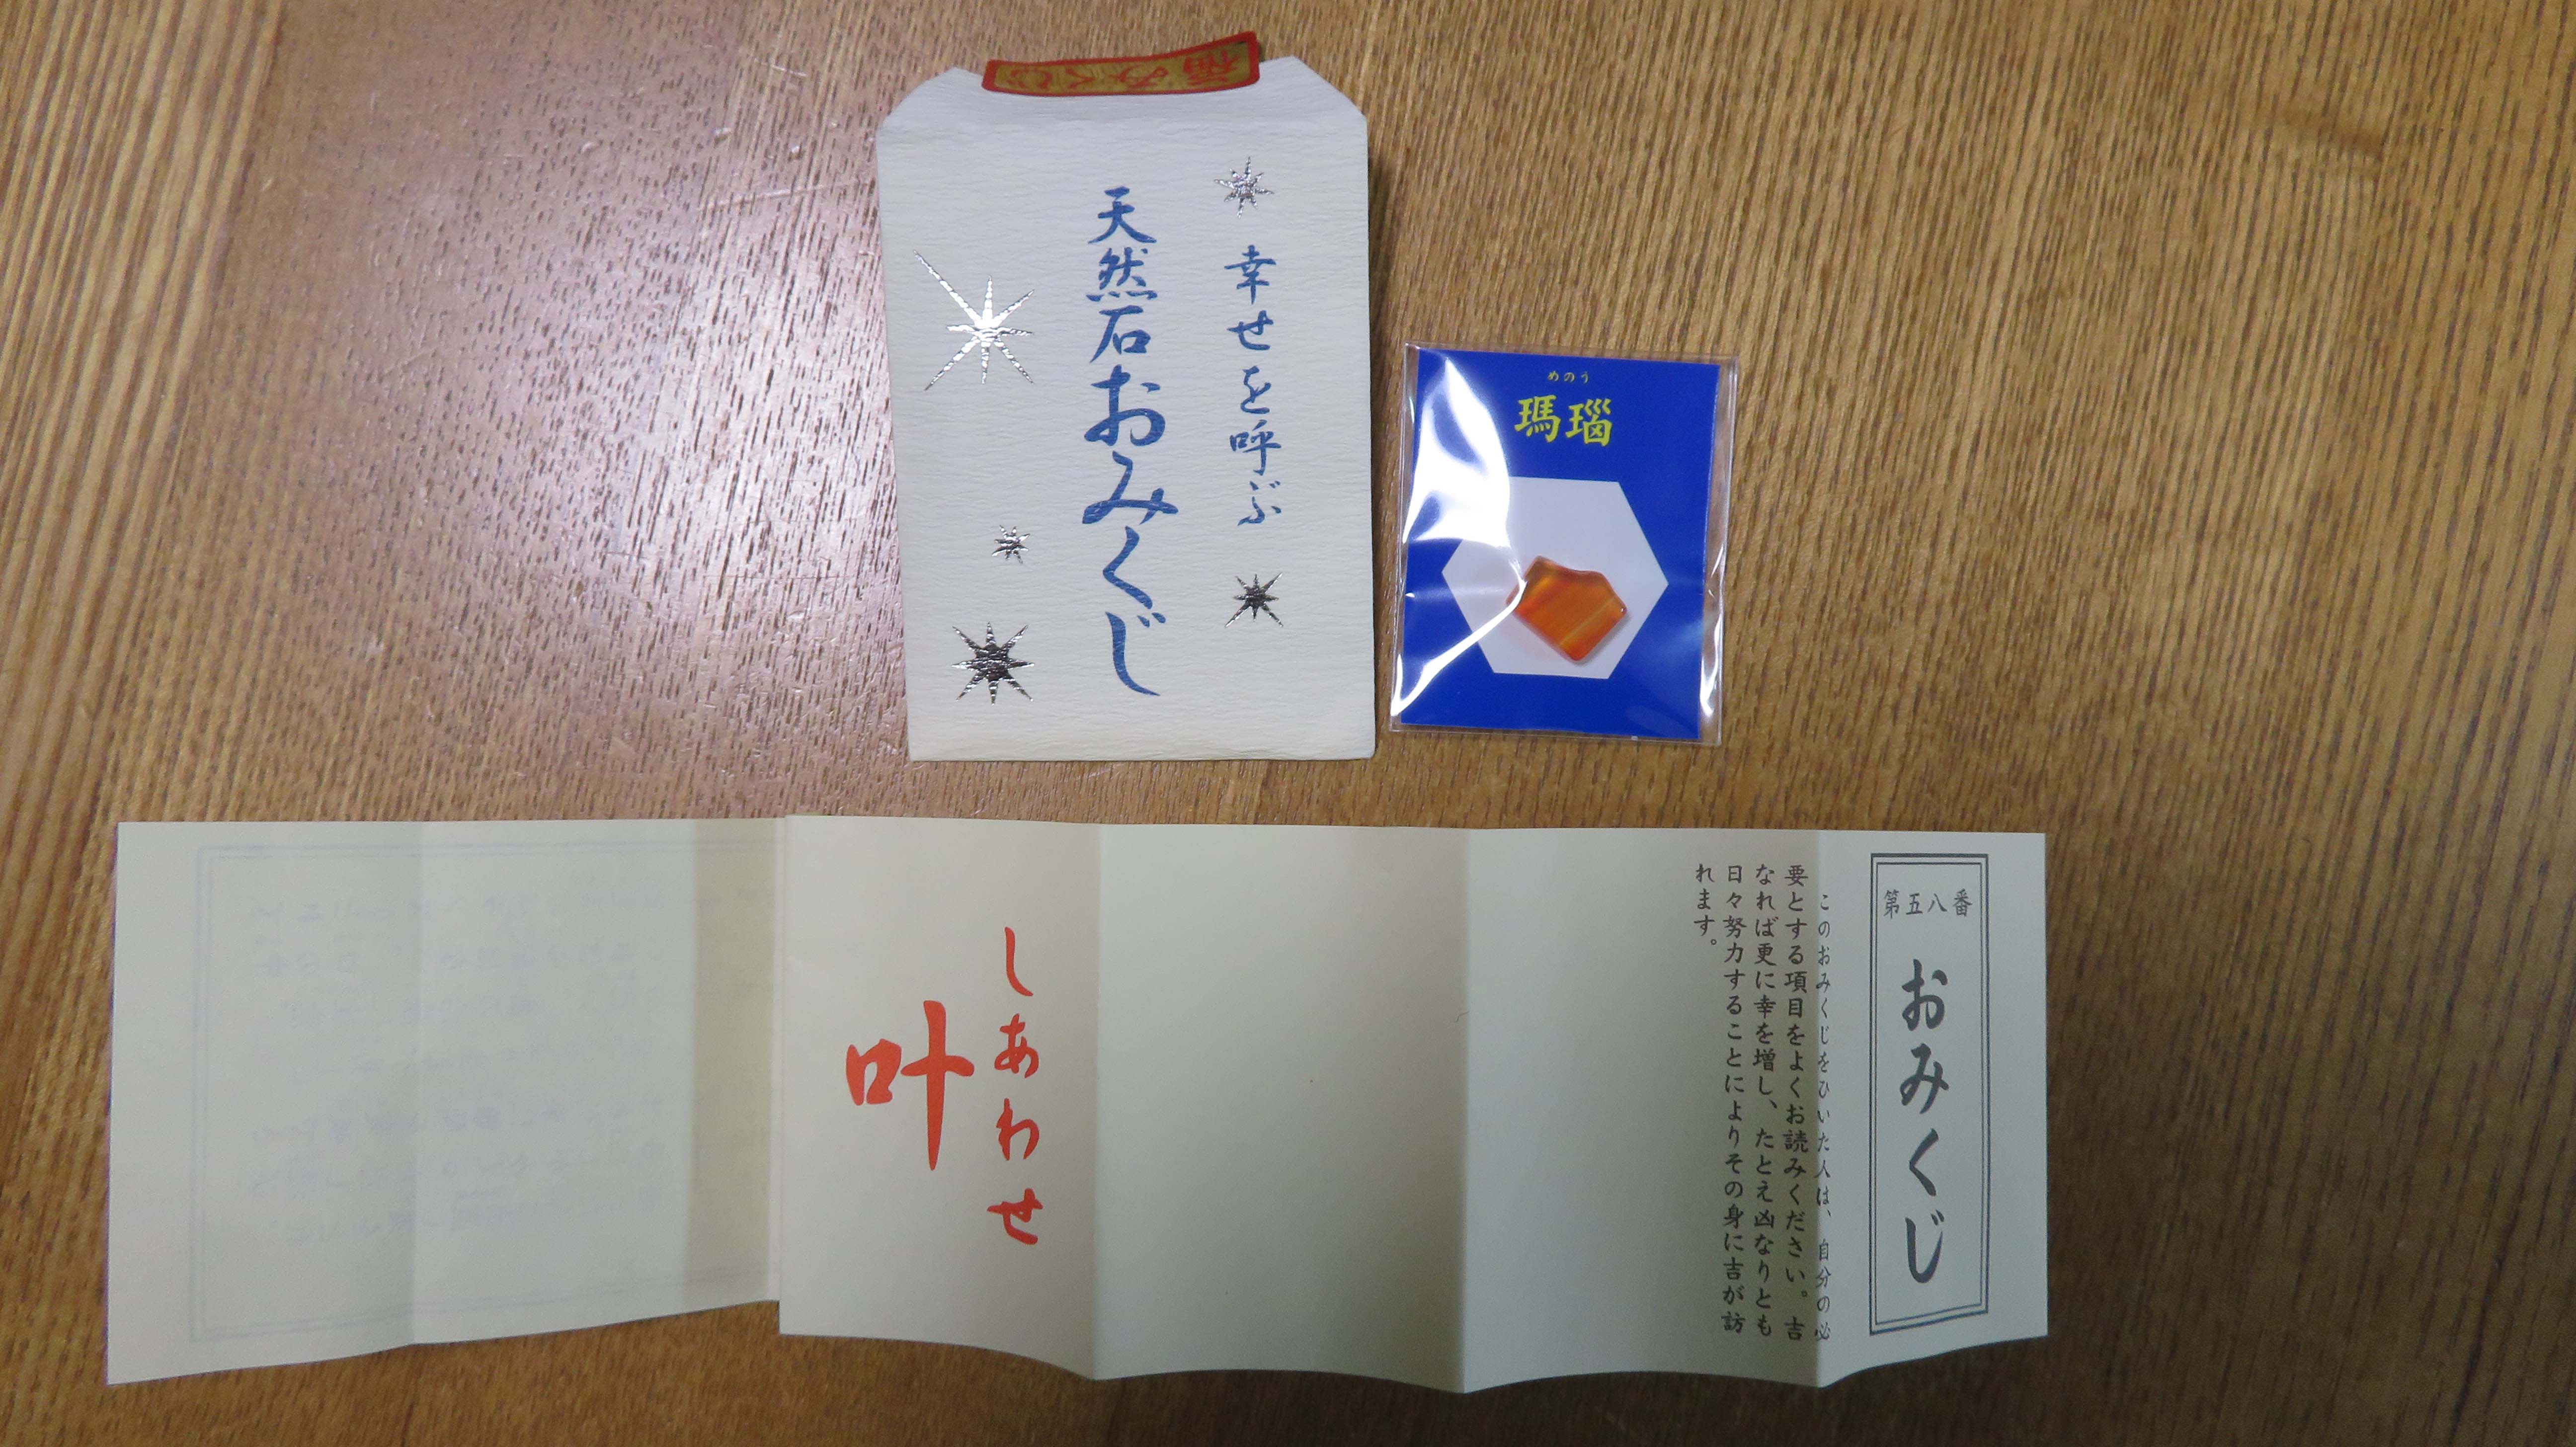 福みくじ
幸せを呼ぶ
天然石おみくじ
めのう
瑪瑙
第五八番
おみくじ
このおみくじをひいた人は、自分の必
要とする項目をよくお読みください。吉
なれば更に幸を増し、たとえ凶なりとも
日々努力することによりその身に吉が訪
れます。
しあわせ
叶